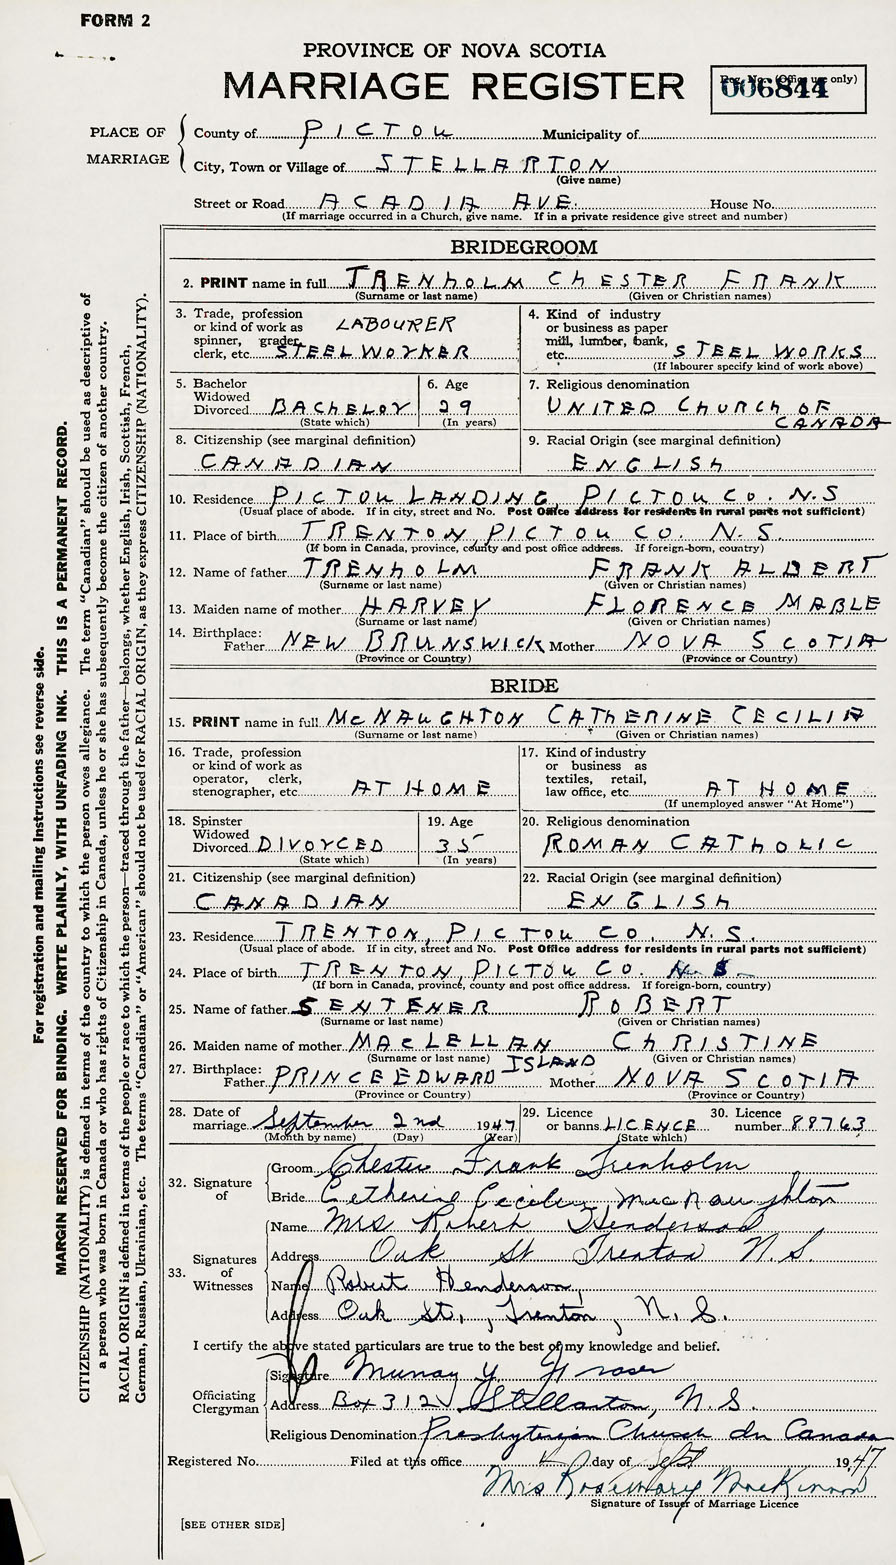 FORM 2
PROVINCE OF NOVA SCOTIA
MARRIAGE REGISTER
Reg. No. (Office use only)
006844
PLACE OF MARRIAGE
County of PICTOU Municipality of
City, Town or Village of STELLARTON
(Give name)
Street or Road ACADIA AVE. House No.
(If marriage occurred in a Church, give name. If in a private residence give street and number)
BRIDEGROOM
2. PRINT name in full TRENHOLM CHESTER FRANK
(Surname or last name) (Given or Christian names)
3. Trade, profession or kind of work as spinner, grader, clerk, etc. LABOURER STEEL WORKER
4. Kind of industry or business as paper mill, lumber, bank, etc. STEEL WORKS
(If labourer specify kind of work above)
5. Bachelor Widowed Divorced BACHELOR
(State which)
6. Age 29
(In years)
7. Religious denomination
UNITED CHURCH OF CANADA
8. Citizenship (see marginal definition)
CANADIAN
9. Racial Origin (see marginal definition)
ENGLISH
10. Residence PICTOU LANDING, PICTOU CO. N.S
(Usual place of abode. If in city, street and No. Post Office address for residents in rural parts not sufficient)
11. Place of birth TRENTON, PICTOU CO. N.S.
(If born in Canada, province, county and post office address. If foreign-born, country)
12. Name of father TRENHOLM FRANK ALBERT
(Surname or last name) (Given or Christian names)
13. Maiden name of mother HARVEY FLORENCE MABLE
(Surname or last name) (Given or Christian names)
14. Birthplace: Father NEW BRUNSWICK Mother NOVA SCOTIA
(Province or Country) (Province or Country)
BRIDE
15. PRINT name in full McNAUGHTON CATHERINE CECILIA
(Surname or last name) (Given or Christian names)
16. Trade, profession or kind of work as operator, clerk, stenographer, etc. AT HOME
17. Kind of industry or business as textiles, retail, law office, etc. AT HOME
(If unemployed answer "At Home")
18. Spinster Widowed Divorced DIVORCED
(State which)
19. Age 35
(In years)
20. Religious denomination
ROMAN CATHOLIC
21. Citizenship (see marginal definition)
CANADIAN
22. Racial Origin (see marginal definition)
ENGLISH
23. Residence TRENTON, PICTOU CO. N.S.
(Usual place of abode. If in city, street and No. Post Office address for residents in rural parts not sufficient)
24. Place of birth TRENTON, PICTOU CO. N.S.
(If born in Canada, province, county and post office address. If foreign-born, country)
25. Name of father SENTENER ROBERT
(Surname or last name) (Given or Christian names)
26. Maiden name of mother MACLELLAN CHRISTINE
(Surname or last name) (Given or Christian names)
27. Birthplace: Father PRINCE EDWARD ISLAND Mother NOVA SCOTIA
(Province or Country) (Province or Country)
28. Date of marriage September 2nd 1947
(Month by name) (Day) (Year)
29. Licence or banns LICENCE
(State which)
30. Licence number 88763
32. Signature of
Groom Chester Frank Trenholm
Bride Catherine Cecilia MacNaughton
33. Signatures of Witnesses
Name Mrs Robert Henderson
Address Oak St Trenton N.S.
Name Robert Henderson,
Address Oak St., Trenton, N.S.
I certify the above stated particulars are true to the best of my knowledge and belief.
Officiating Clergyman
Signature Murray Y. Fraser
Address Box 312 Stellarton, N.S.
Religious Denomination Presbyterian Church in Canada
Registered No. Filed at this office 4 day of Sept 1947
Mrs Rosemary MacKinnon
Signature of Issuer of Marriage Licence
[SEE OTHER SIDE]
For registration and mailing instructions see reverse side.
MARGIN RESERVED FOR BINDING. WRITE PLAINLY, WITH UNFADING INK. THIS IS A PERMANENT RECORD.
CITIZENSHIP (NATIONALITY) is defined in terms of the country to which the person owes allegiance. The term "Canadian" should be used as descriptive of
a person who was born in Canada or who has rights of Citizenship in Canada, unless he or she has subsequently become the citizen of another country.
RACIAL ORIGIN is defined in terms of the people or race to which the person—traced through the father—belongs, whether English, Irish, Scottish, French,
German, Russian, Ukrainian, etc. The terms "Canadian" or "American" should not be used for RACIAL ORIGIN, as they express CITIZENSHIP (NATIONALITY).